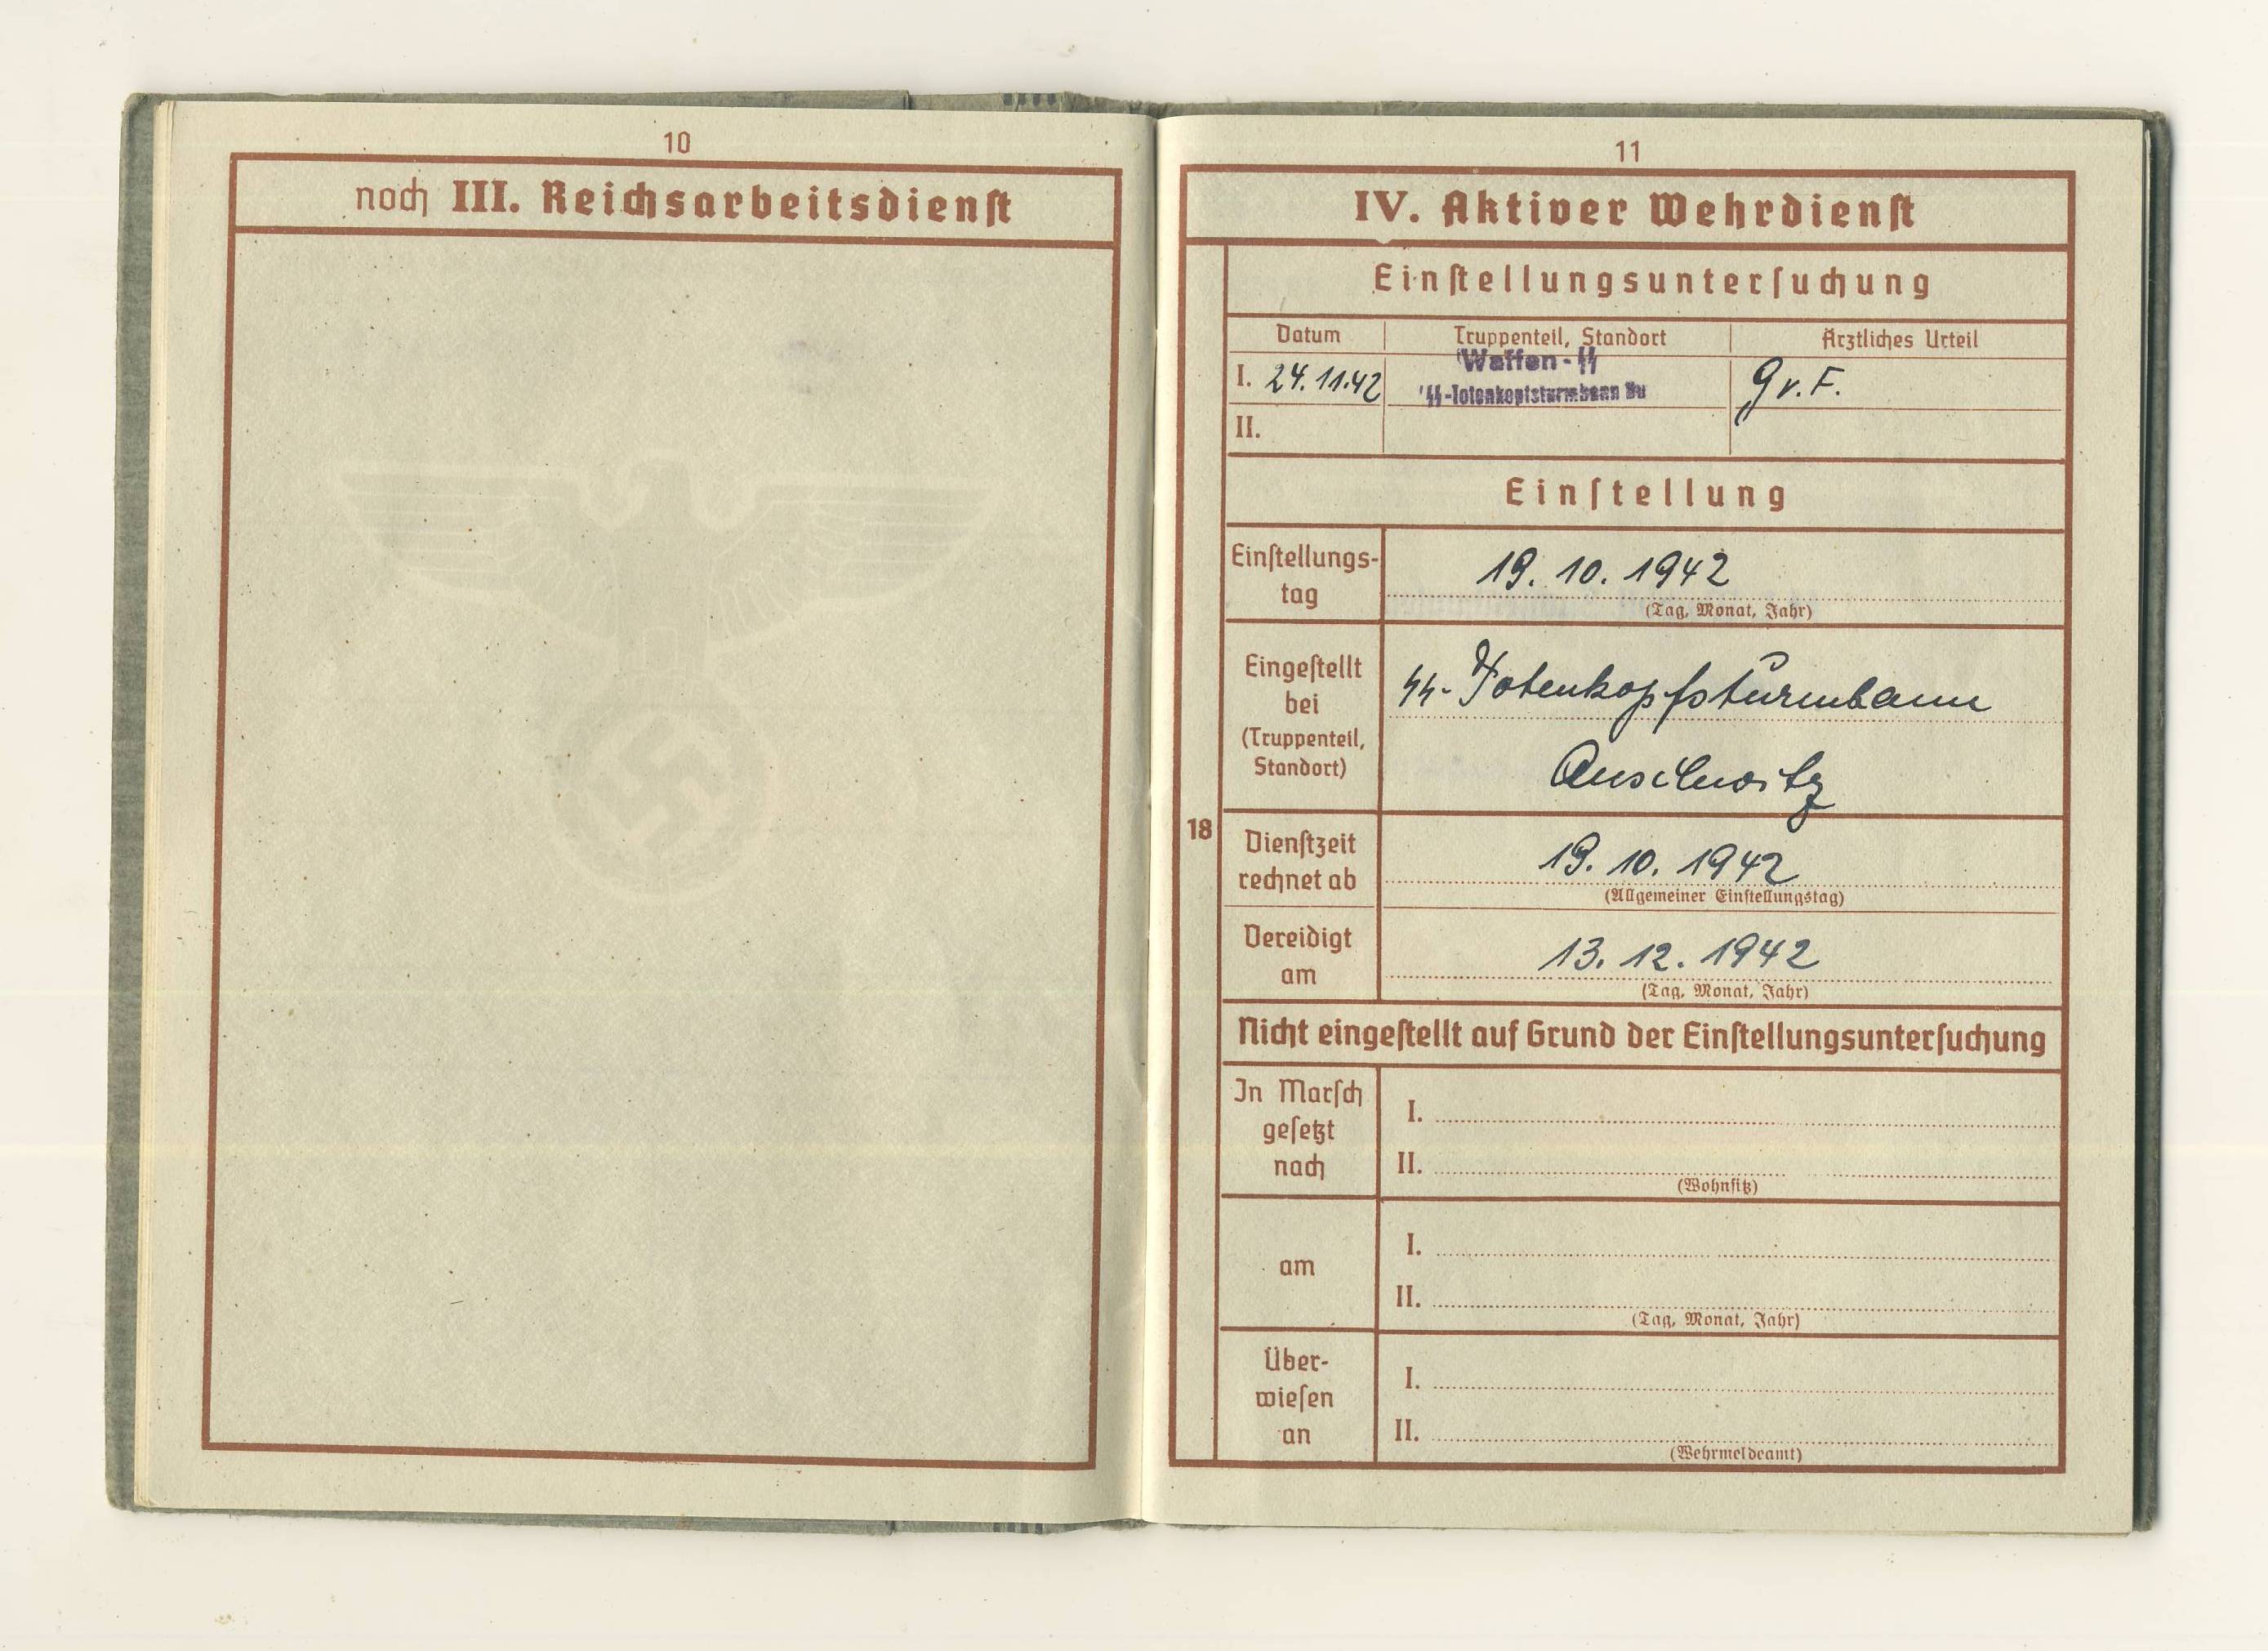 10
noch III. Reichsarbeitsdienst
11
IV. Aktiver Wehrdienst
Einstellungsuntersuchung
Datum Truppenteil, Standort Ärztliches Urteil
Waffen-SS
I. 24.11.42 SS-Totenkopfsturmbann Bu gv.F.
II.
Einstellung
Einstellungs-
tag
19. 10. 1942
(Tag, Monat, Jahr)
Eingestellt
bei
(Truppenteil,
Standort)
SS-Totenkopfsturmbann
Auschwitz
18
Dienstzeit
rechnet ab
19. 10. 1942
(Allgemeiner Einstellungstag)
Vereidigt
am
13. 12. 1942
(Tag, Monat, Jahr)
Nicht eingestellt auf Grund der Einstellungsuntersuchung
In Marsch
gesetzt
nach
I.
II.
(Wohnsitz)
am
I.
II.
(Tag, Monat, Jahr)
Über-
wiesen
an
I.
II.
(Wehrmeldeamt)